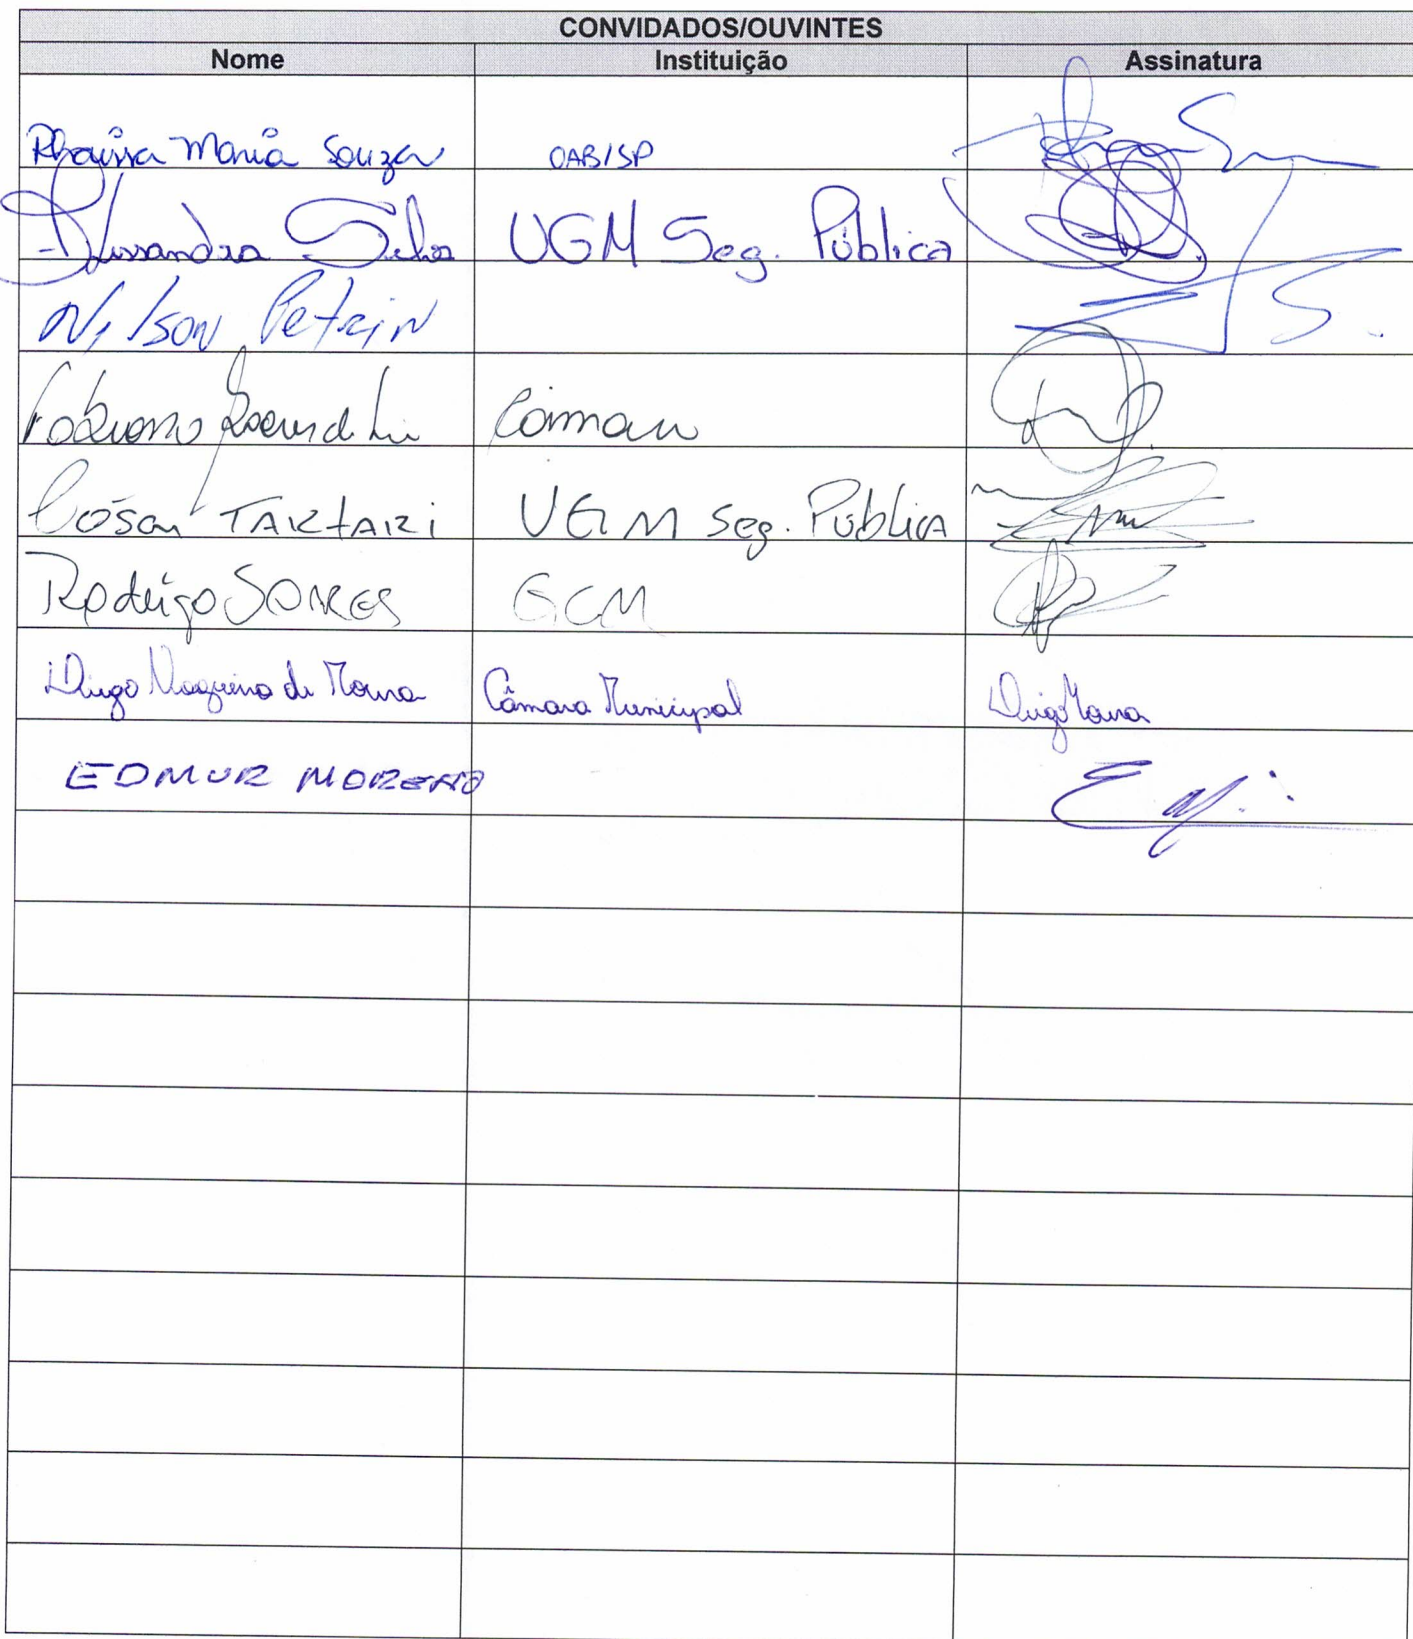 CONVIDADOS/OUVINTES
Nome Instituição Assinatura
Rhaissa Maria Souza OAB/SP
Alessandra Silva UGM Seg. Pública
Nilson Petrin
Fabiano Câmara
César TARtARi UGM Seg. Pública
Rodrigo SOARES GCM
Diego Nogueira de Moura Câmara Municipal Diego Moura
EDMUR MORENO